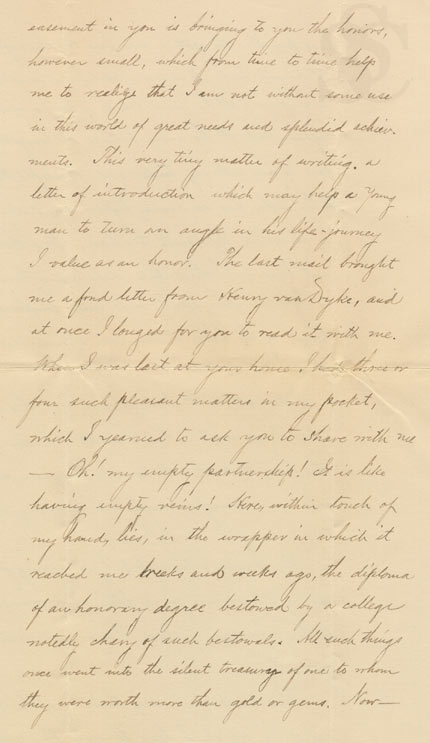 easement in you is bringing to you the honors,
however small, which from time to time help
me to realize that I am not without some use
in this world of great needs and splendid achiev-
ments. This very tiny matter of writing a
letter of introduction which may help a young
man to turn an angle in his life-journey
I value as an honor. The last mail brought
me a fond letter from Henry van Dyke, and
at once I longed for you to read it with me.
When I was last at your home I had three or
four such pleasant matters in my pocket,
which I yearned to ask you to share with me
— Oh! my empty partnership! It is like
having empty veins! Here, within touch of
my hand, lies, in the wrapper in which it
reached me weeks and weeks ago, the diploma
of an honorary degree bestowed by a college
notedly chary of such bestowals. All such things
once went into the silent treasury of one to whom
they were worth more than gold or gems. Now—